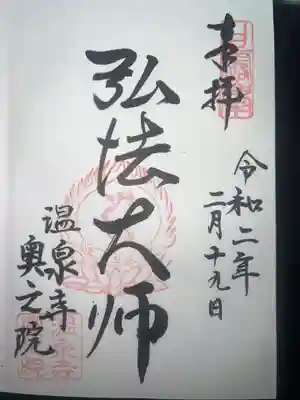 奉拝
令和二年
二月十九日
弘法大师
温泉寺
奥之院